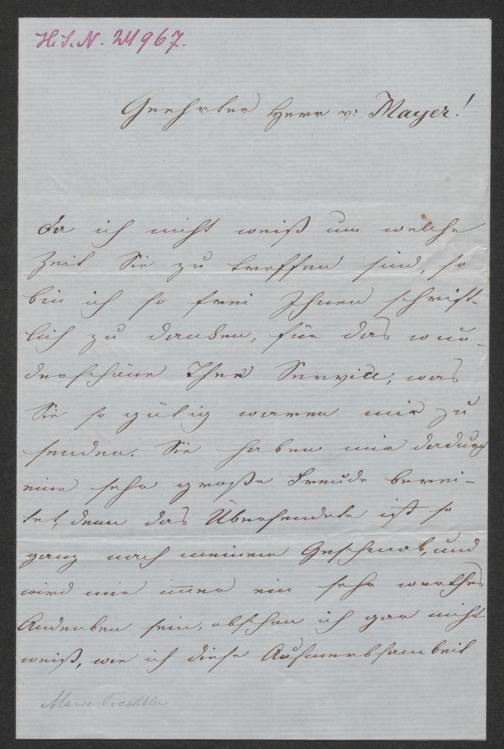 H.I.N. 24967.
Geehrter Herr v: Mayer!
Da ich nicht weiß um welche
Zeit Sie zu treffen sind, so
bin ich so frei Ihnen schrift-
lich zu danken, für das wun-
derschöne Thee Service, was
Sie so gütig waren mir zu
senden. Sie haben mir dadurch
eine sehr große Freude berei-
tet, denn das Übersendete ist so
ganz nach meinem Geschmak, und
wird mir immer ein sehr werthes
Andenken sein, obschon ich gar nicht
weiß, wie ich diese Aufmerksamkeit
Marie